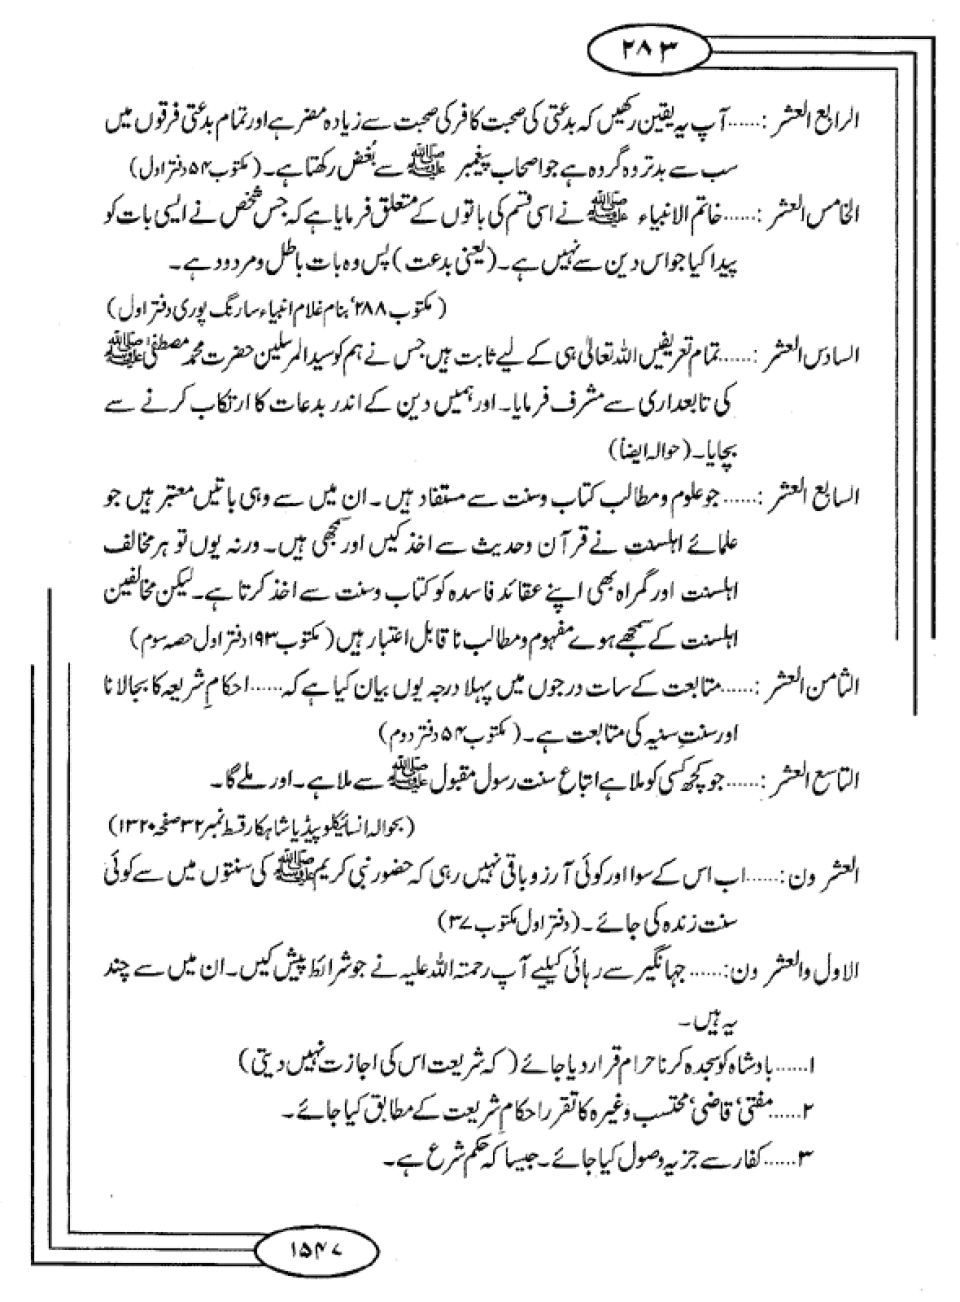 ۲۸۳
الرابع العشر :......آپ یہ یقین رکھیں کہ بدعتی کی صحبت کافر کی صحبت سے زیادہ مضر ہے اور تمام بدعتی فرقوں میں
سب سے بدتر وہ گروہ ہے جو اصحاب پیغمبر ﷺ سے بُغض رکھتا ہے۔ (مکتوب ۵۴ دفتر اول)
الخامس العشر :......خاتم الانبیاء ﷺ نے اسی قسم کی باتوں کے متعلق فرمایا ہے کہ جس شخص نے ایسی بات کو
پیدا کیا جو اس دین سے نہیں ہے۔ (یعنی بدعت) پس وہ بات باطل و مردود ہے۔
(مکتوب ۲۸۸‘ بنام غلام انبیاء سارنگ پوری دفتر اول)
السادس العشر :......تمام تعریفیں اللہ تعالیٰ ہی کے لیے ثابت ہیں جس نے ہم کو سید المرسلین حضرت محمد مصطفیٰ ﷺ
کی تابعداری سے مشرف فرمایا۔ اور ہمیں دین کے اندر بدعات کا ارتکاب کرنے سے
بچایا۔ (حوالہ ایضاً)
السابع العشر :......جو علوم و مطالب کتاب و سنت سے مستفاد ہیں۔ ان میں سے وہی باتیں معتبر ہیں جو
علمائے اہلسنت نے قرآن و حدیث سے اخذ کیں اور سمجھی ہیں۔ ورنہ یوں تو ہر مخالف
اہلسنت اور گمراہ بھی اپنے عقائد فاسدہ کو کتاب و سنت سے اخذ کرتا ہے۔ لیکن مخالفین
اہلسنت کے سمجھے ہوے مفہوم و مطالب ناقابل اعتبار ہیں (مکتوب ۱۹۳ دفتر اول حصہ سوم)
الثامن العشر :......متابعت کے سات درجوں میں پہلا درجہ یوں بیان کیا ہے کہ......احکامِ شریعہ کا بجالانا
اور سنتِ سنیہ کی متابعت ہے۔ (مکتوب ۵۴ دفتر دوم)
التاسع العشر :......جو کچھ کسی کو ملا ہے اتباع سنت رسول مقبول ﷺ سے ملا ہے۔ اور ملے گا۔
(بحوالہ انسائیکلو پیڈیا شاہکار قسط نمبر ۳۲ صفحہ ۱۳۲۰)
العشرون :......اب اس کے سوا اور کوئی آرزو باقی نہیں رہی کہ حضور نبی کریم ﷺ کی سنتوں میں سے کوئی
سنت زندہ کی جائے۔ (دفتر اول مکتوب ۳۷)
الاول والعشرون :...... جہانگیر سے رہائی کیلیے آپ رحمتہ اللہ علیہ نے جو شرائط پیش کیں۔ ان میں سے چند
یہ ہیں۔
۱......بادشاہ کو سجدہ کرنا حرام قرار دیا جائے (کہ شریعت اس کی اجازت نہیں دیتی)
۲......مفتی‘ قاضی‘ محتسب وغیرہ کا تقرر احکامِ شریعت کے مطابق کیا جائے۔
۳......کفار سے جزیہ وصول کیا جائے۔ جیسا کہ حکم شرع ہے۔
۱۵۴۷